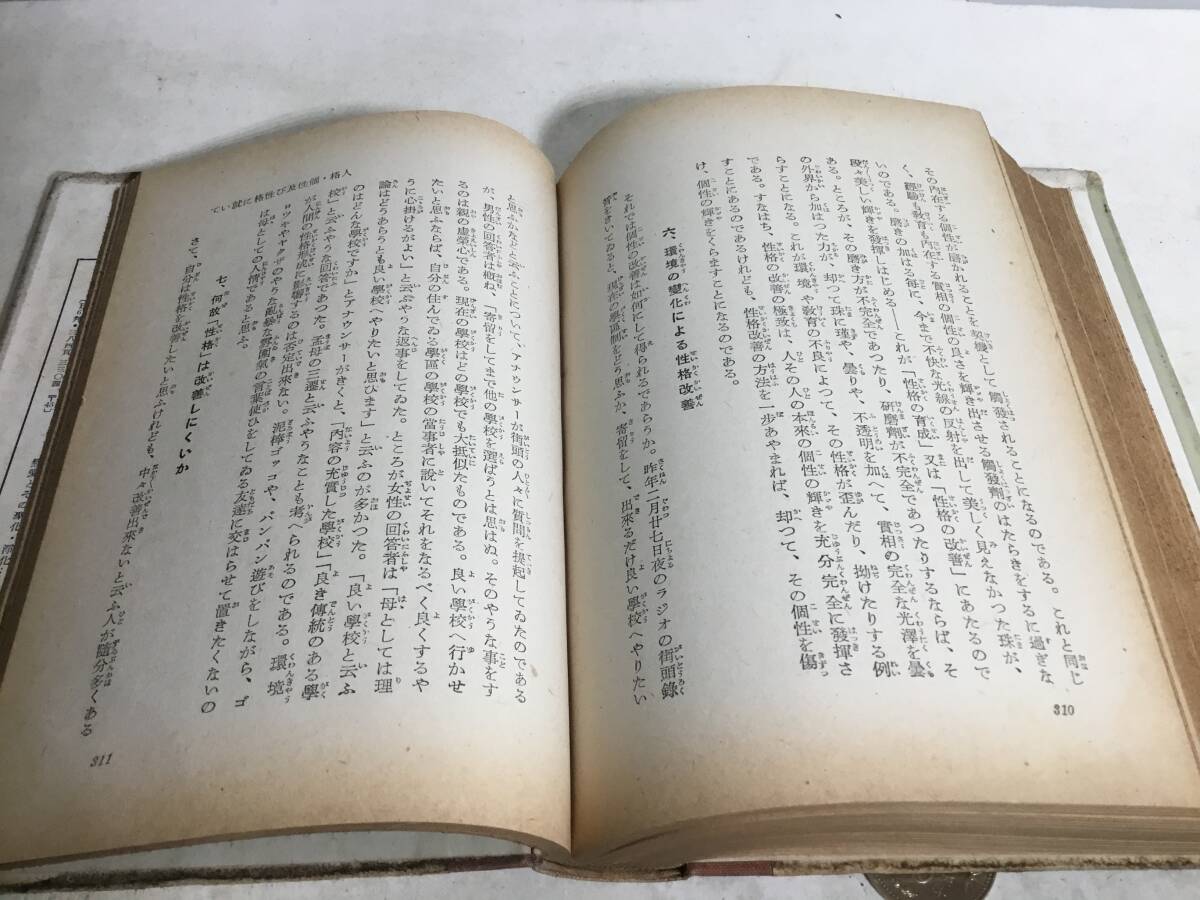 その内在する個性が磨かれることを契機として觸發されることになるのである。これと同じ
く、經驗も敎育も内在する實相の個性の良さを輝き出させる觸發劑のはたらきをするに過ぎな
いのである。磨きの加はる每に、今まで不快な光線の反射を出して美しく見えなかつた珠が、
段々美しい輝きを發揮しはじめる――これが「性格の育成」又は「性格の改善」にあたるので
ある。ところが、その磨き方が不完全であつたり、研磨劑が不完全であつたりするならば、そ
の外界から加はつた力が、却つて珠に瑾や、曇りや、不透明を加へて、實相の完全な光澤を曇
らすことになる。これが環境や敎育の不良によつて、その性格が歪んだり、拗けたりする例
である。すなはち、性格の改善の極致は、人その人の本來の個性の輝きを充分完全に發揮さ
すことにあるのであるけれども、性格改善の方法を一步あやまれば、却つて、その個性を傷
け、個性の輝きをくらますことになるのである。
六、環境の變化による性格改善
それでは個性の改善は如何にして得られるであらうか。昨年二月廿七日夜のラジオの街頭錄
音をきいてゐると、現在の學區制をどう思ふか、寄留をして、出來るだけ良い學校へやりたい
310
人格・個性及び性格に就いて
と思ふかなどと云ふことについて、アナウンサーが街頭の人々に質問を提起してゐたのである
が、男性の回答者は槪ね、「寄留をしてまで他の學校を選ばうとは思はぬ。そのやうな事をす
るのは親の虛榮心である。現在の學校はどの學校でも大抵似たものである。良い學校へ行かせ
たいと思ふならば、自分の住んでゐる學區の學校の當事者に說いてそれをなるべく良くするや
うに心掛けるがよい」と云ふやうな返事をしてゐた。ところが女性の回答者は「母としては理
論はどうあらうとも良い學校へやりたいと思ひます」と云ふのが多かつた。「良い學校と云ふ
のはどんな學校ですか」とアナウンサーがきくと、「内容の充實した學校」「良き傳統のある學
校」と云ふやうな回答であつた。孟母の三遷と云ふやうなことも考へられるのである。環境
が人間の性格形成に影響するのは否定出來ない。泥棒ゴッコや、パンパン遊びをしながら、ゴ
ロツキやヤクザのやうな亂暴な雰圍氣の言葉使ひをしてゐる友達に交はらせて置きたくないの
は母としての人情であると思ふ。
七、何故「性格」は改善しにくいか
さて、自分は性格を改善したいと思ふけれども、中々改善出來ないと云ふ人が隨分多くある
311